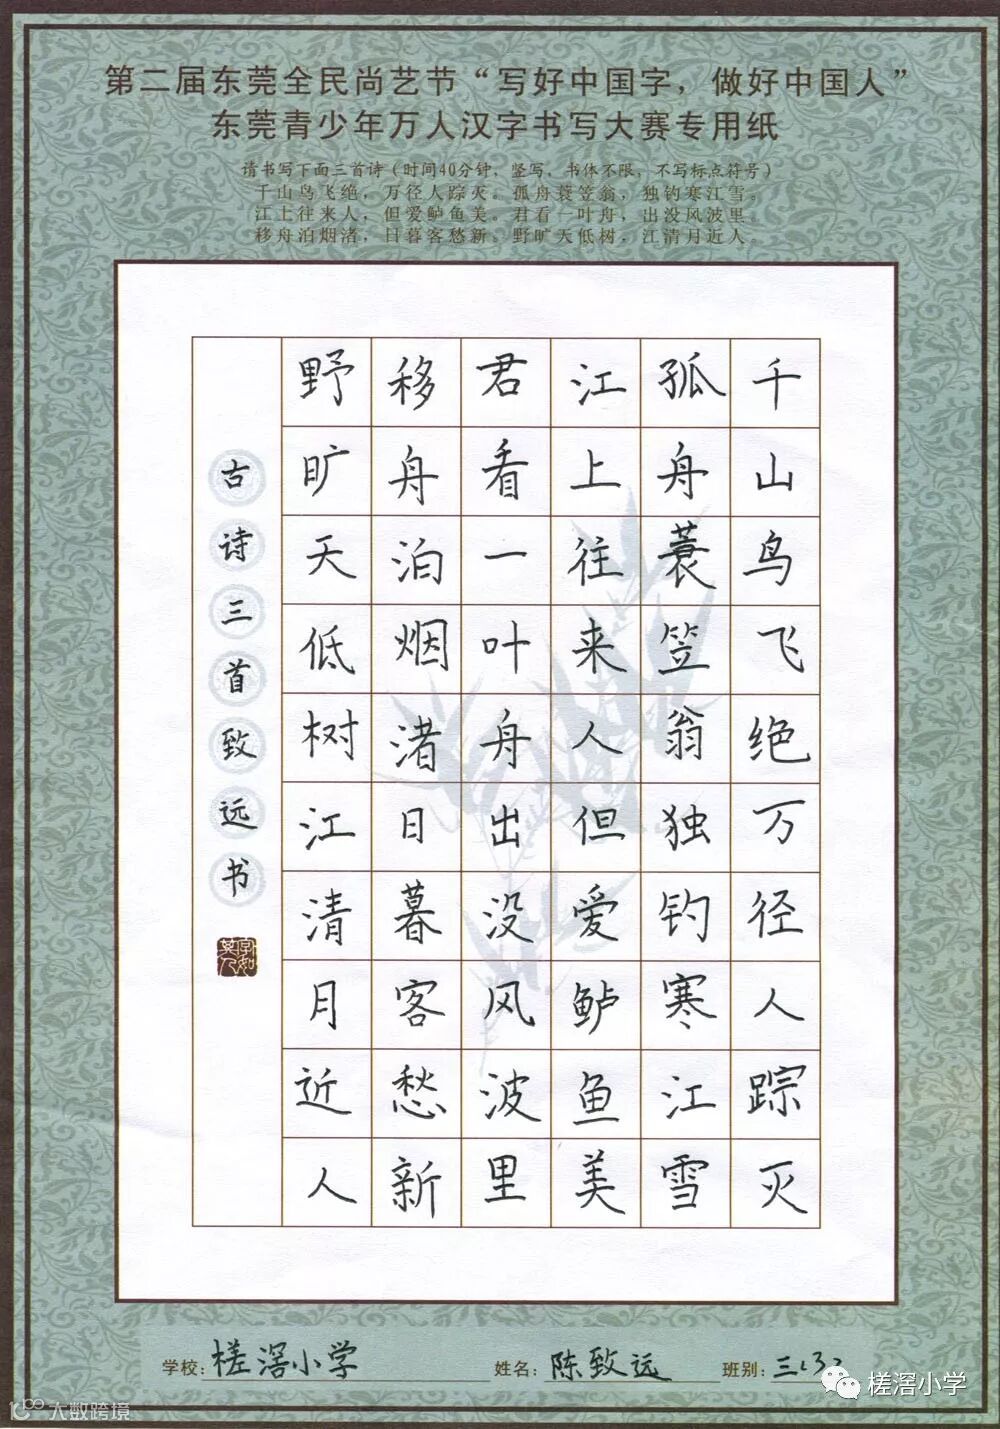 第二届东莞全民尚艺节“写好中国字，做好中国人”
东莞青少年万人汉字书写大赛专用纸
请书写下面三首诗（时间40分钟，竖写，书体不限，不写标点符号）
千山鸟飞绝，万径人踪灭。孤舟蓑笠翁，独钓寒江雪。
江上往来人，但爱鲈鱼美。君看一叶舟，出没风波里。
移舟泊烟渚，日暮客愁新。野旷天低树，江清月近人。
千山鸟飞绝万径人踪灭
孤舟蓑笠翁独钓寒江雪
江上往来人但爱鲈鱼美
君看一叶舟出没风波里
移舟泊烟渚日暮客愁新
野旷天低树江清月近人
古诗三首致远书
字如其人
学校：槎滘小学
姓名：陈致远
班别：三（3）
槎滘小学
大数跨境